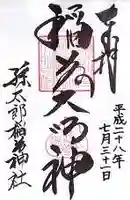 奉拝
平成二十八年
七月三十一日
稲荷大明神
孫太郎稲荷神社